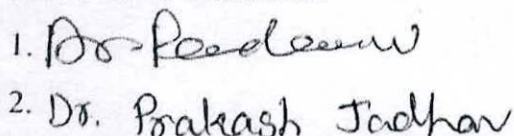 1. Dr.
2. Dr. Prakash Jadhav